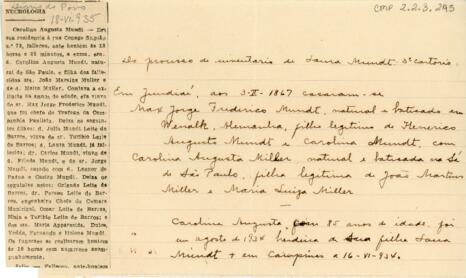 Diario do Povo
18-VI-935
CMP 2.2.3.293
NECROLOGIA
Carolina Augusta Mundt — Em
sua residencia á rua Conego Scipião
n.º 73, falleceu, ante hontem ás 18
horas e minutos, a exma. sra.
d. Carolina Augusta Mundt, natu-
ral de São Paulo, e filha dos falle-
cidos srs. João Martins Muller e
de d. Maria Muller. Contava a ex-
tincta de edade, era
viuva do sr. Max Jorge Frederico Mundt,
que foi chefe do Trafego da Com-
panhia Paulista. Deixa os
filhos: d. Julia Mundt Leite de
Barros, viuva do sr. Turibio Leite
de Barros; d. Laura Mundt, já falle-
cida; dr. Carlos Mundt, viuvo de
d. Frieda Mundt, e do sr. Jorge
Mundt, casado com d. Leonor de
Padua e Castro Mundt. Deixa os
seguintes netos: Orlando Leite de
Barros, dr. Perseu Leite de Barros,
engenheiro Chefe da Camara
Municipal, Omar Leite de Barros,
Nino e Turibio Leite de Barros; e
as srtas. Maria Apparecida, Dulce,
Yedda, Fernando e Helena Mundt.
Os funeraes se realizaram hontem
ás 16 horas com numeroso
acompanhamento.
Do processo de inventario de Laura Mundt. 3º Cartorio.
Em Jundiaí, aos 3-II-1867 casaram-se
Max Jorge Frederico Mundt, natural e batisado em
Alemanha, filho legitimo de Henerico
Augusto Mundt e Carolina Mundt, com
Carolina Augusta Miller, natural e batisada na Sé
de São Paulo, filha legitima de João Martins
Miller e Maria Luiza Miller
Carolina Augusta, com 85 anos de idade, foi
em agosto de 1934 herdeira de sua filha Laura
Mundt + em Campinas a 16-VI-934.